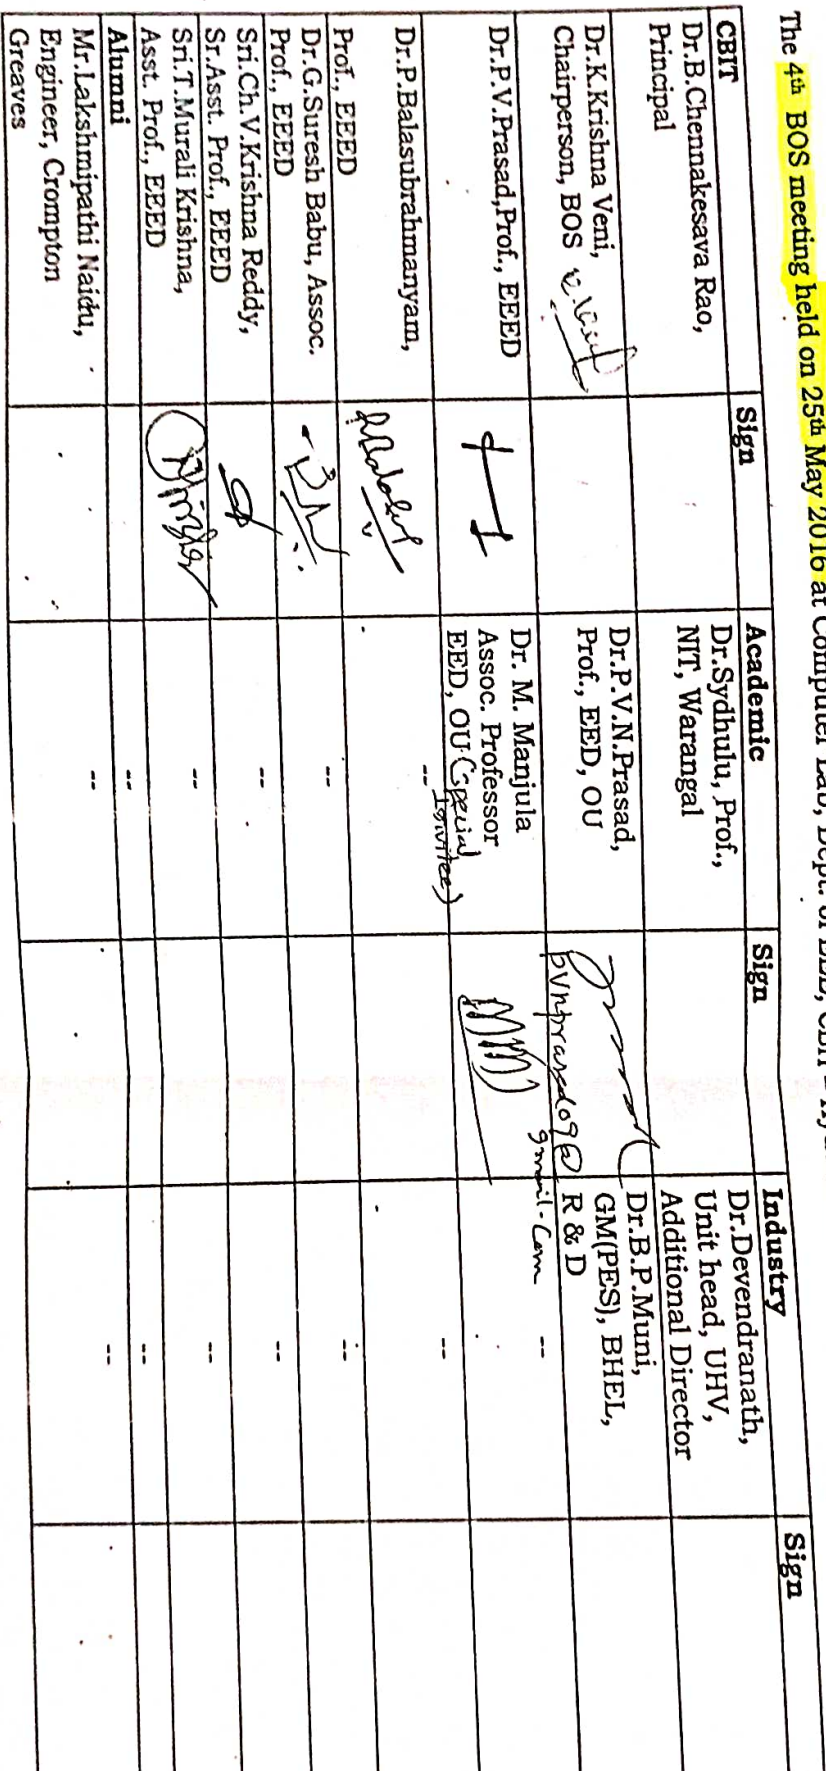 The 4th BOS meeting held on 25th May 2016 at Computer Lab, Dept. of EEE,
CBIT
Sign
Academic
Sign
Industry
Sign
Dr.B.Chennakesava Rao,
Principal
Dr.Sydhulu, Prof.,
NIT, Warangal
Dr.Devendranath,
Unit head, UHV,
Additional Director
Dr.K.Krishna Veni,
Chairperson, BOS
Dr.P.V.N.Prasad,
Prof., EED, OU
pvnprasad09@
gmail.com
Dr.B.P.Muni,
GM(PES), BHEL,
R & D
Dr.P.V.Prasad,Prof., EEED
Dr. M. Manjula
Assoc. Professor
EED, OU (special
Invitee)
--
Dr.P.Balasubrahmanyam,
Prof., EEED
--
--
Dr.G.Suresh Babu, Assoc.
Prof., EEED
--
--
Sri.Ch.V.Krishna Reddy,
Sr.Asst. Prof., EEED
--
--
Sri.T.Murali Krishna,
Asst. Prof., EEED
--
--
Alumni
--
--
Mr.Lakshmipathi Naidu,
Engineer, Crompton
Greaves
--
--